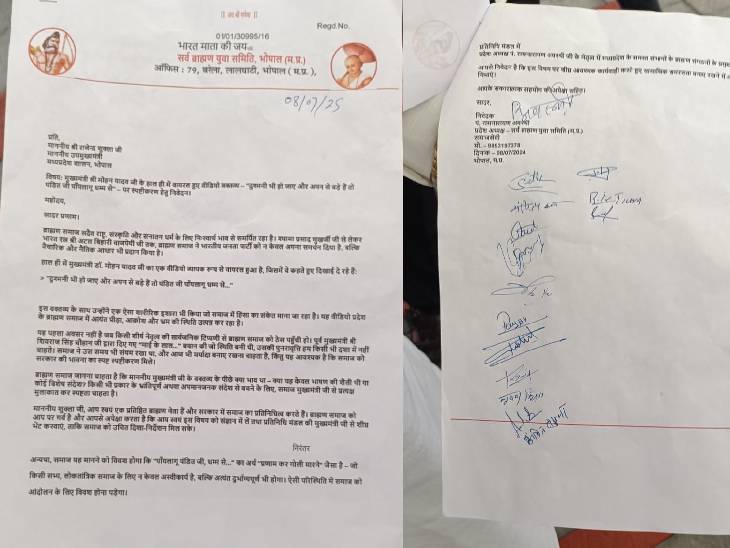 || जय श्री गणेश ||
Regd.No.
01/01/30995/16
भारत माता की जय
सर्व ब्राह्मण युवा समिति, भोपाल (म.प्र.)
ऑफिस : 79, बरेला, लालघाटी, भोपाल ( म.प्र. ),
08/07/25
प्रति,
माननीय श्री राजेन्द्र शुक्ला जी
माननीय उपमुख्यमंत्री
मध्यप्रदेश शासन, भोपाल
विषय: मुख्यमंत्री श्री मोहन यादव जी के हाल ही में वायरल हुए वीडियो वक्तव्य – "दुश्मनी भी हो जाए और अपन से बड़े हैं तो
पंडित जी पाँयलागू धम्म से" – पर स्पष्टीकरण हेतु निवेदन।
महोदय,
सादर प्रणाम।
ब्राह्मण समाज सदैव राष्ट्र, संस्कृति और सनातन धर्म के लिए निःस्वार्थ भाव से समर्पित रहा है। श्यामा प्रसाद मुखर्जी जी से लेकर
भारत रत्न श्री अटल बिहारी वाजपेयी जी तक, ब्राह्मण समाज ने भारतीय जनता पार्टी को न केवल अपना समर्थन दिया है, बल्कि
वैचारिक और नैतिक आधार भी प्रदान किया है।
हाल ही में मुख्यमंत्री डॉ. मोहन यादव जी का एक वीडियो व्यापक रूप से वायरल हुआ है, जिसमें वे कहते हुए दिखाई दे रहे हैं:
> "दुश्मनी भी हो जाए और अपन से बड़े हैं तो पंडित जी पाँयलागू धम्म से..."
इस वक्तव्य के साथ उन्होंने एक ऐसा शारीरिक इशारा भी किया जो समाज में हिंसा का संकेत माना जा रहा है। यह वीडियो प्रदेश
के ब्राह्मण समाज में अत्यंत पीड़ा, आक्रोश और भ्रम की स्थिति उत्पन्न कर रहा है।
यह पहला अवसर नहीं है जब किसी शीर्ष नेतृत्व की सार्वजनिक टिप्पणी से ब्राह्मण समाज को ठेस पहुँची हो। पूर्व मुख्यमंत्री श्री
शिवराज सिंह चौहान जी द्वारा दिए गए "माई के लाल..." बयान की जो स्थिति बनी थी, उसकी पुनरावृत्ति हम किसी भी दशा में नहीं
चाहते। समाज ने उस समय भी संयम रखा था, और आज भी मर्यादा बनाए रखना चाहता है, किंतु यह आवश्यक है कि समाज को
सरकार की भावना का स्पष्ट स्पष्टीकरण मिले।
ब्राह्मण समाज जानना चाहता है कि माननीय मुख्यमंत्री जी के वक्तव्य के पीछे क्या भाव था – क्या यह केवल भाषण की शैली थी या
कोई विशेष संदेश? किसी भी प्रकार के भ्रांतिपूर्ण अथवा अपमानजनक संदेश से बचने के लिए, समाज मुख्यमंत्री जी से प्रत्यक्ष
मुलाकात कर स्पष्टता चाहता है।
माननीय शुक्ला जी, आप स्वयं एक प्रतिष्ठित ब्राह्मण नेता हैं और सरकार में समाज का प्रतिनिधित्व करते हैं। ब्राह्मण समाज को
आप पर गर्व है और आपसे अपेक्षा करता है कि आप स्वयं इस विषय को संज्ञान में लें तथा प्रतिनिधि मंडल की मुख्यमंत्री जी से शीघ्र
भेंट करवाएं, ताकि समाज को उचित दिशा-निर्देशन मिल सके।
निरंतर
अन्यथा, समाज यह मानने को विवश होगा कि "पाँयलागू पंडित जी, धम्म से..." का अर्थ "प्रणाम कर गोली मारने" जैसा है – जो
किसी सभ्य, लोकतांत्रिक समाज के लिए न केवल अस्वीकार्य है, बल्कि अत्यंत दुर्भाग्यपूर्ण भी होगा। ऐसी परिस्थिति में समाज को
आंदोलन के लिए विवश होना पड़ेगा।
प्रतिनिधि मंडल में
प्रदेश अध्यक्ष पं. रामनारायण अवस्थी जी के नेतृत्व में मध्यप्रदेश के समस्त संभागों के ब्राह्मण संगठनों के प्रमुख
आपसे निवेदन है कि इस विषय पर शीघ्र आवश्यक कार्यवाही करते हुए सामाजिक समरसता बनाए रखने में
निभाएं।
आपके सकारात्मक सहयोग की अपेक्षा सहित।
सादर,
निवेदक
पं. रामनारायण अवस्थी
प्रदेश अध्यक्ष – सर्व ब्राह्मण युवा समिति (म.प्र.)
समाजसेवी
मो.- 9853197378
दिनांक – 08/07/2024
भोपाल, म.प्र.